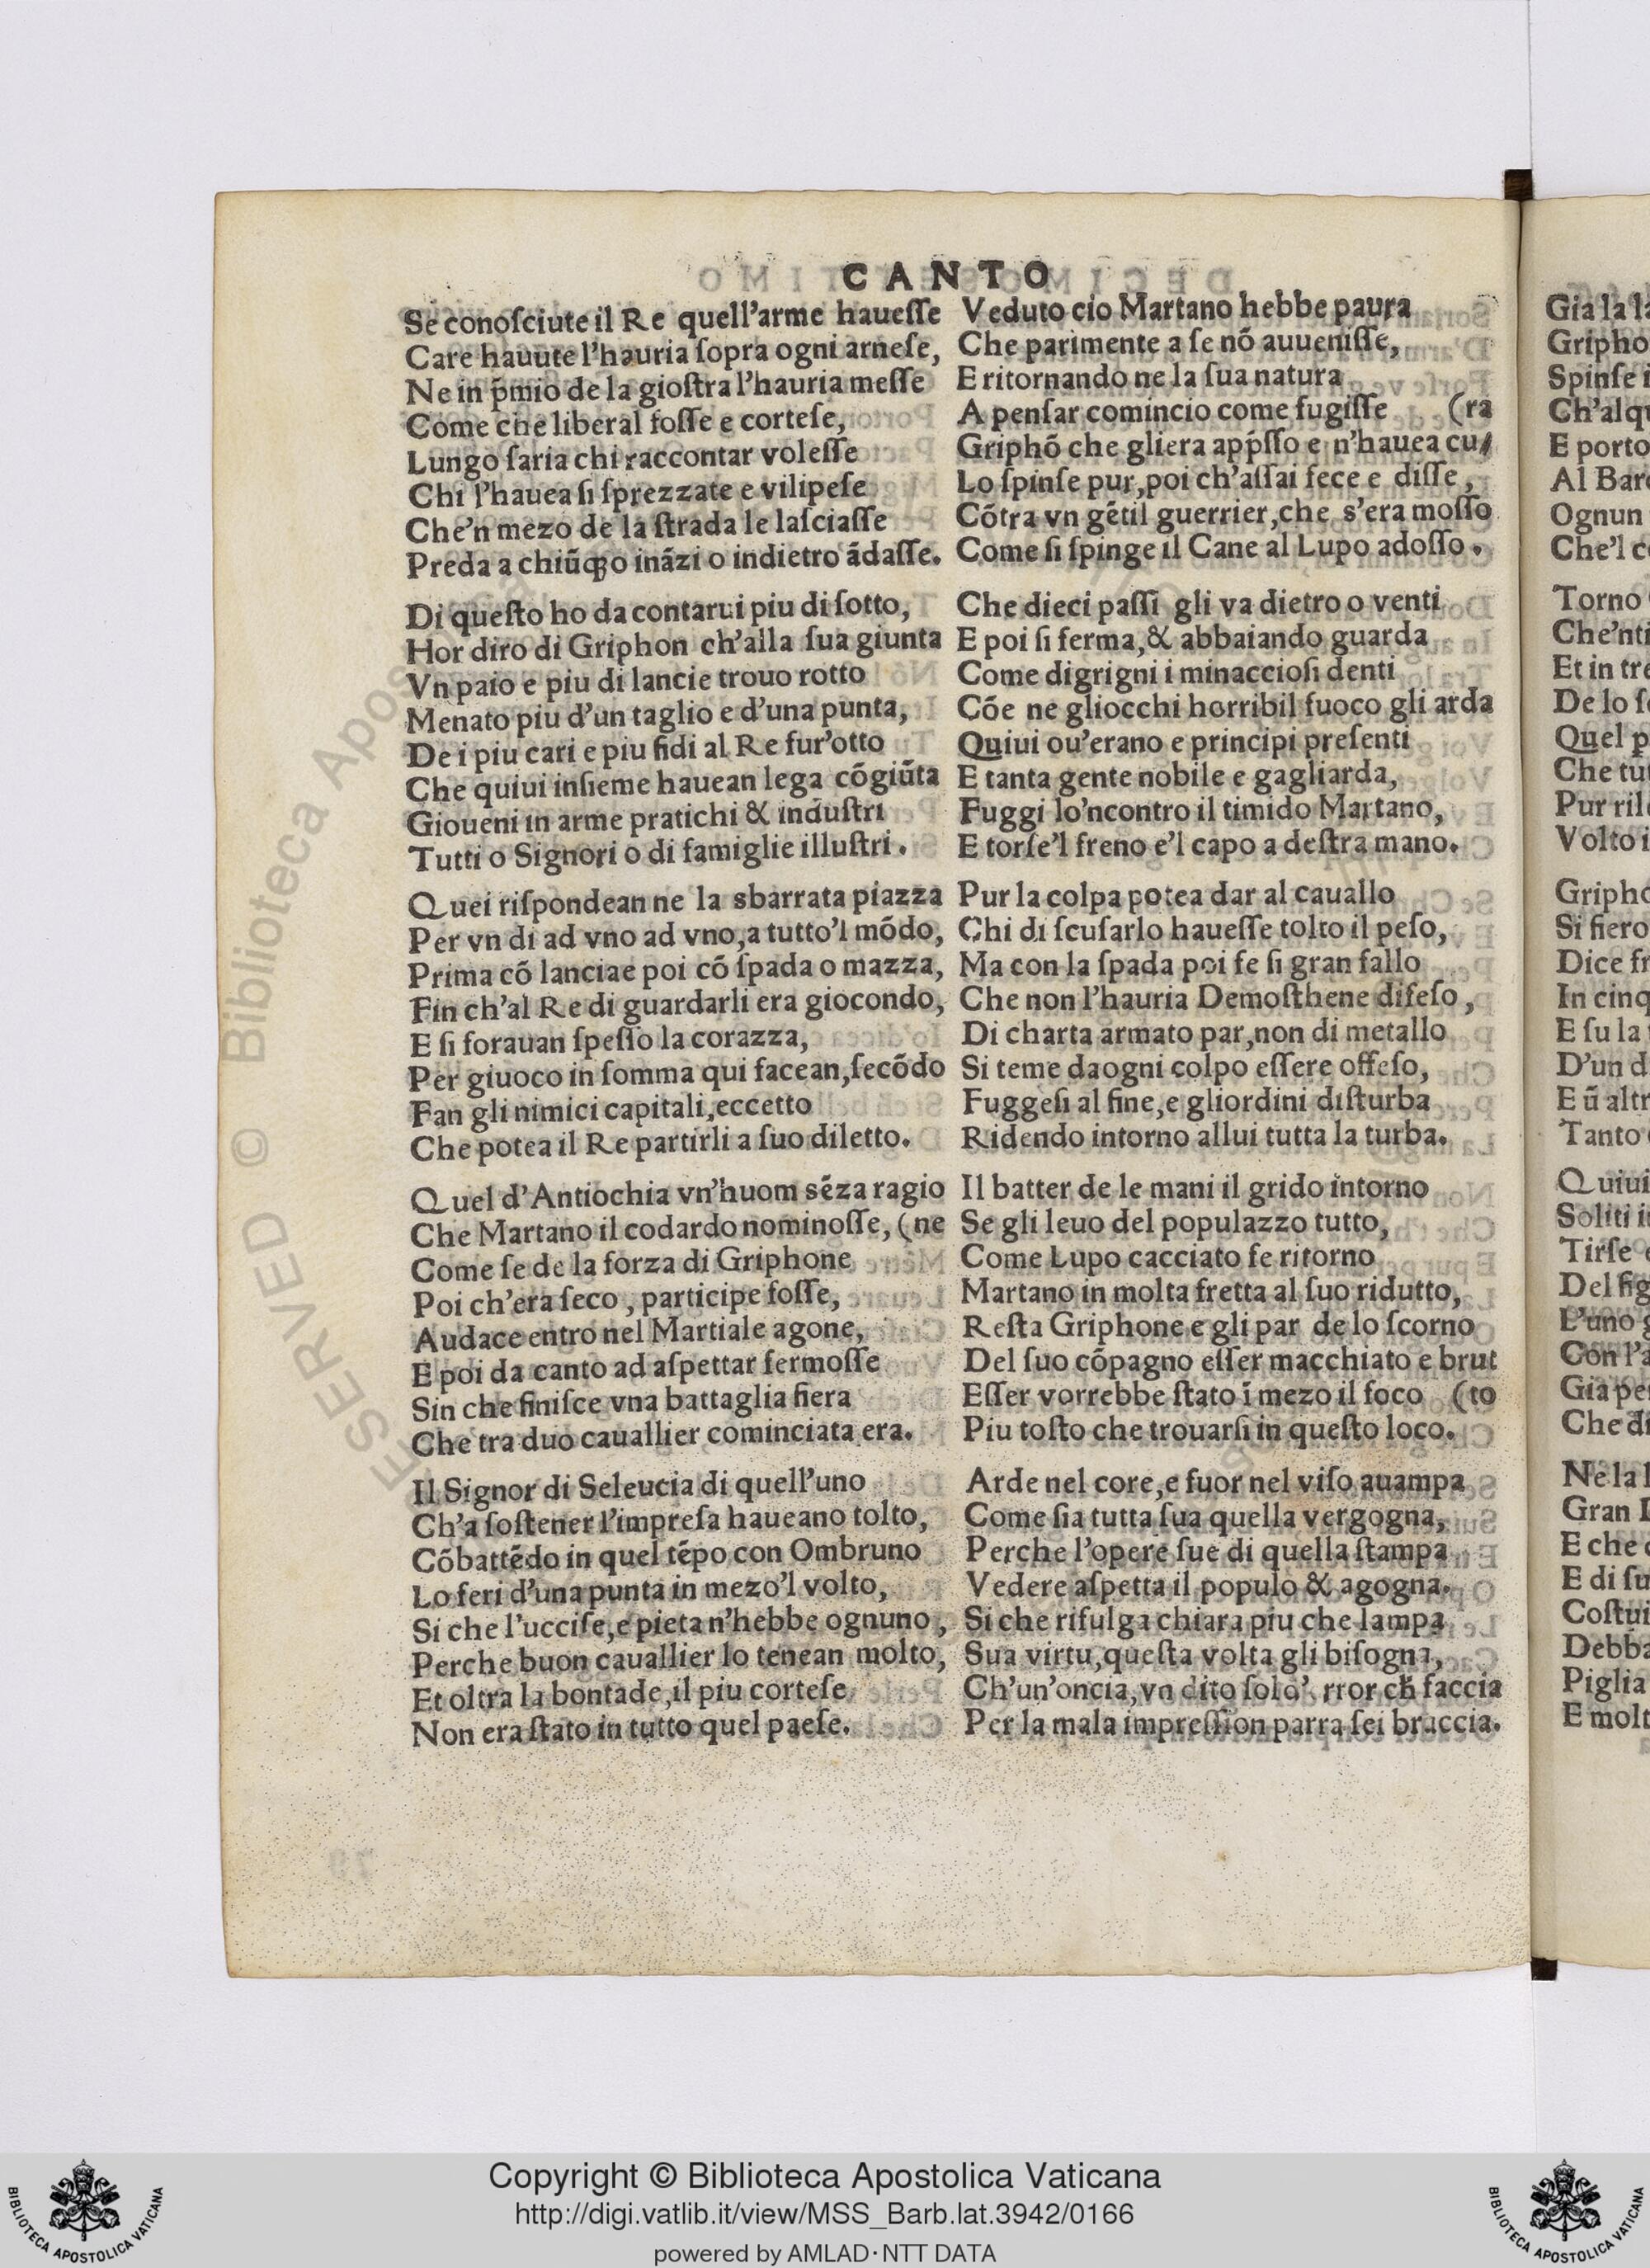 CANTO
Se conoſciute il Re quell'arme haueſſe
Care hauute l'hauria ſopra ogni arneſe,
Ne in p̃mio de la gioſtra l'hauria meſſe
Come che liberal foſſe e corteſe,
Lungo ſaria chi raccontar voleſſe
Chi l'hauea ſi ſprezzate e vilipeſe
Che'n mezo de la ſtrada le laſciaſſe
Preda a chiũꝗo inãzi o indietro ãdaſſe.
Di queſto ho da contarui piu di ſotto,
Hor diro di Griphon ch'alla ſua giunta
Vn paio e piu di lancie trouo rotto
Menato piu d'un taglio e d'una punta,
De i piu cari e piu fidi al Re fur'otto
Che quiui inſieme hauean lega cõgiũta
Gioueni in arme pratichi & induſtri
Tutti o Signori o di famiglie illuſtri.
Quei riſpondean ne la sbarrata piazza
Per vn di ad vno ad vno,a tutto'l mõdo,
Prima cõ lanciae poi cõ ſpada o mazza,
Fin ch'al Re di guardarli era giocondo,
E ſi forauan ſpeſſo la corazza,
Per giuoco in ſomma qui facean,ſecõdo
Fan gli nimici capitali,eccetto
Che potea il Re partirli a ſuo diletto.
Quel d'Antiochia vn'huom sẽza ragio
Che Martano il codardo nominoſſe, (ne
Come ſe de la forza di Griphone
Poi ch'era ſeco, participe foſſe,
Audace entro nel Martiale agone,
E poi da canto ad aſpettar fermoſſe
Sin che finiſce vna battaglia fiera
Che tra duo cauallier cominciata era.
Il Signor di Seleucia di quell'uno
Ch'a ſoſtener l'impreſa haueano tolto,
Cõbattẽdo in quel tẽpo con Ombruno
Lo feri d'una punta in mezo'l volto,
Si che l'ucciſe,e pieta n'hebbe ognuno,
Perche buon cauallier lo tenean molto,
Et oltra la bontade,il piu corteſe
Non era ſtato in tutto quel paeſe.
Veduto cio Martano hebbe paura
Che parimente a ſe nõ auueniſſe,
E ritornando ne la ſua natura
A penſar comincio come fugiſſe (ra
Griphõ che gliera app̃ſſo e n'hauea cu/
Lo ſpinſe pur,poi ch'aſſai fece e diſſe,
Cõtra vn gẽtil guerrier,che s'era moſſo
Come ſi ſpinge il Cane al Lupo adoſſo.
Che dieci paſſi gli va dietro o venti
E poi ſi ferma,& abbaiando guarda
Come digrigni i minaccioſi denti
Cõe ne gliocchi horribil fuoco gli arda
Quiui ou'erano e principi preſenti
E tanta gente nobile e gagliarda,
Fuggi lo'ncontro il timido Martano,
E torſe'l freno e'l capo a deſtra mano.
Pur la colpa potea dar al cauallo
Chi di ſcuſarlo haueſſe tolto il peſo,
Ma con la ſpada poi fe ſi gran fallo
Che non l'hauria Demoſthene difeſo,
Di charta armato par,non di metallo
Si teme daogni colpo eſſere offeſo,
Fuggeſi al fine,e gliordini diſturba
Ridendo intorno allui tutta la turba.
Il batter de le mani il grido intorno
Se gli leuo del populazzo tutto,
Come Lupo cacciato fe ritorno
Martano in molta fretta al ſuo ridutto,
Reſta Griphone e gli par de lo ſcorno
Del ſuo cõpagno eſſer macchiato e brut
Eſſer vorrebbe ſtato ĩ mezo il foco (to
Piu toſto che trouarſi in queſto loco.
Arde nel core,e fuor nel viſo auampa
Come ſia tutta ſua quella vergogna,
Perche l'opere ſue di quella ſtampa
Vedere aſpetta il populo & agogna.
Si che rifulga chiara piu che lampa
Sua virtu,queſta volta gli biſogna,
Ch'un'oncia,vn dito ſolo' rror ch̃ faccia
Per la mala impreſſion parra ſei braccia.
Gia la la
Gripho
Spinſe i
Ch'alqu
E porto
Al Baro
Ognun
Che'l c
Torno
Che'nti
Et in tre
De lo ſ
Quel p
Che tut
Pur ril
Volto i
Gripho
Si fiero
Dice fr
In cinq
E ſu la
D'un d
E ũ altr
Tanto
Quiui
Soliti i
Tirſe
Del fig
L'uno g
Con l'a
Gia per
Che di
Ne la l
Gran
E che
E di ſu
Coſtui
Debba
Piglia
E molt
© Biblioteca Apos
ESERVED
Copyright © Biblioteca Apostolica Vaticana
http://digi.vatlib.it/view/MSS_Barb.lat.3942/0166
powered by AMLAD·NTT DATA
BIBLIOTECA APOSTOLICA VATICANA
BIBLIOTECA APOSTOLICA VATICANA